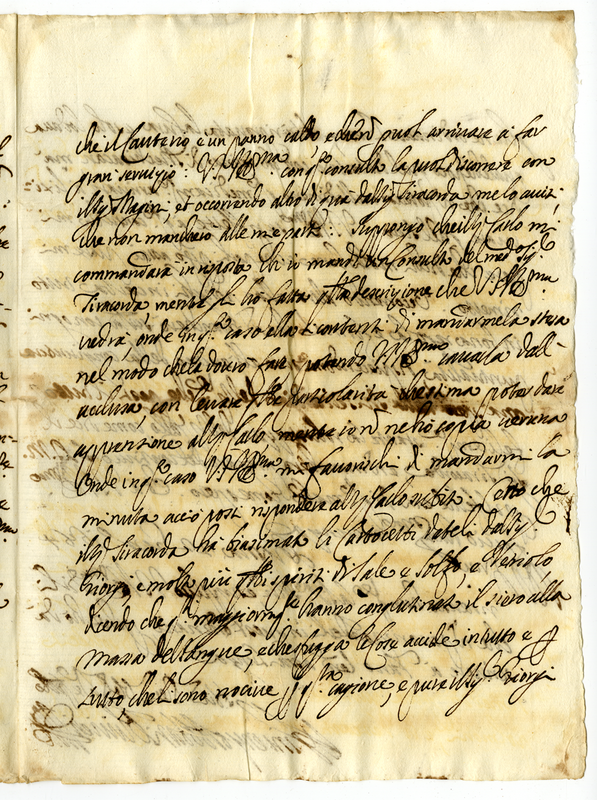 che il Cauterio è un panno caldo, e che non puol arrivare à far
gran servizio: V.S. Ill.ma con q.o consulto la puol discorrere con
il Sig. Magini, et occorrendo altro di qua dal Sig. Tiracorda me lo avvisi
che non mancherò alle mie parti: Suppongo che il Sig. Carlo mi
commandarà in risposta ch'io mandi un Consulto del med.o Sig.
Tiracorda, mentre li ho fatta descrizione che V.S. Ill.ma
vedrà, onde in q.o caso ella si contenti di mandarmela stesa
nel modo che la dovrò fare, potendo V.S. Ill.ma cavarla dall'
acclusa, con levare particolarità che stima poter dare
apprensione al Sig. Carlo mentre io non ne hò copia veruna
Onde in q.o caso V.S. Ill.ma mi favorischi di mandarmi la
minuta acciò possi rispondere al Sig. Carlo Certo che
il Sig. Tiracorda hà biasimati li dateli dal Sig.
Giorgi, e molto più spiriti di Sale e Solfo, e Vetriolo
dicendo che q.i maggiorm.te hanno conglutinato il siero alla
massa del sangue, e che fugga le Cose acide in tutto e p
tutto che li sono nocive p q.ta cagione, e pure il Sig. Giorgi